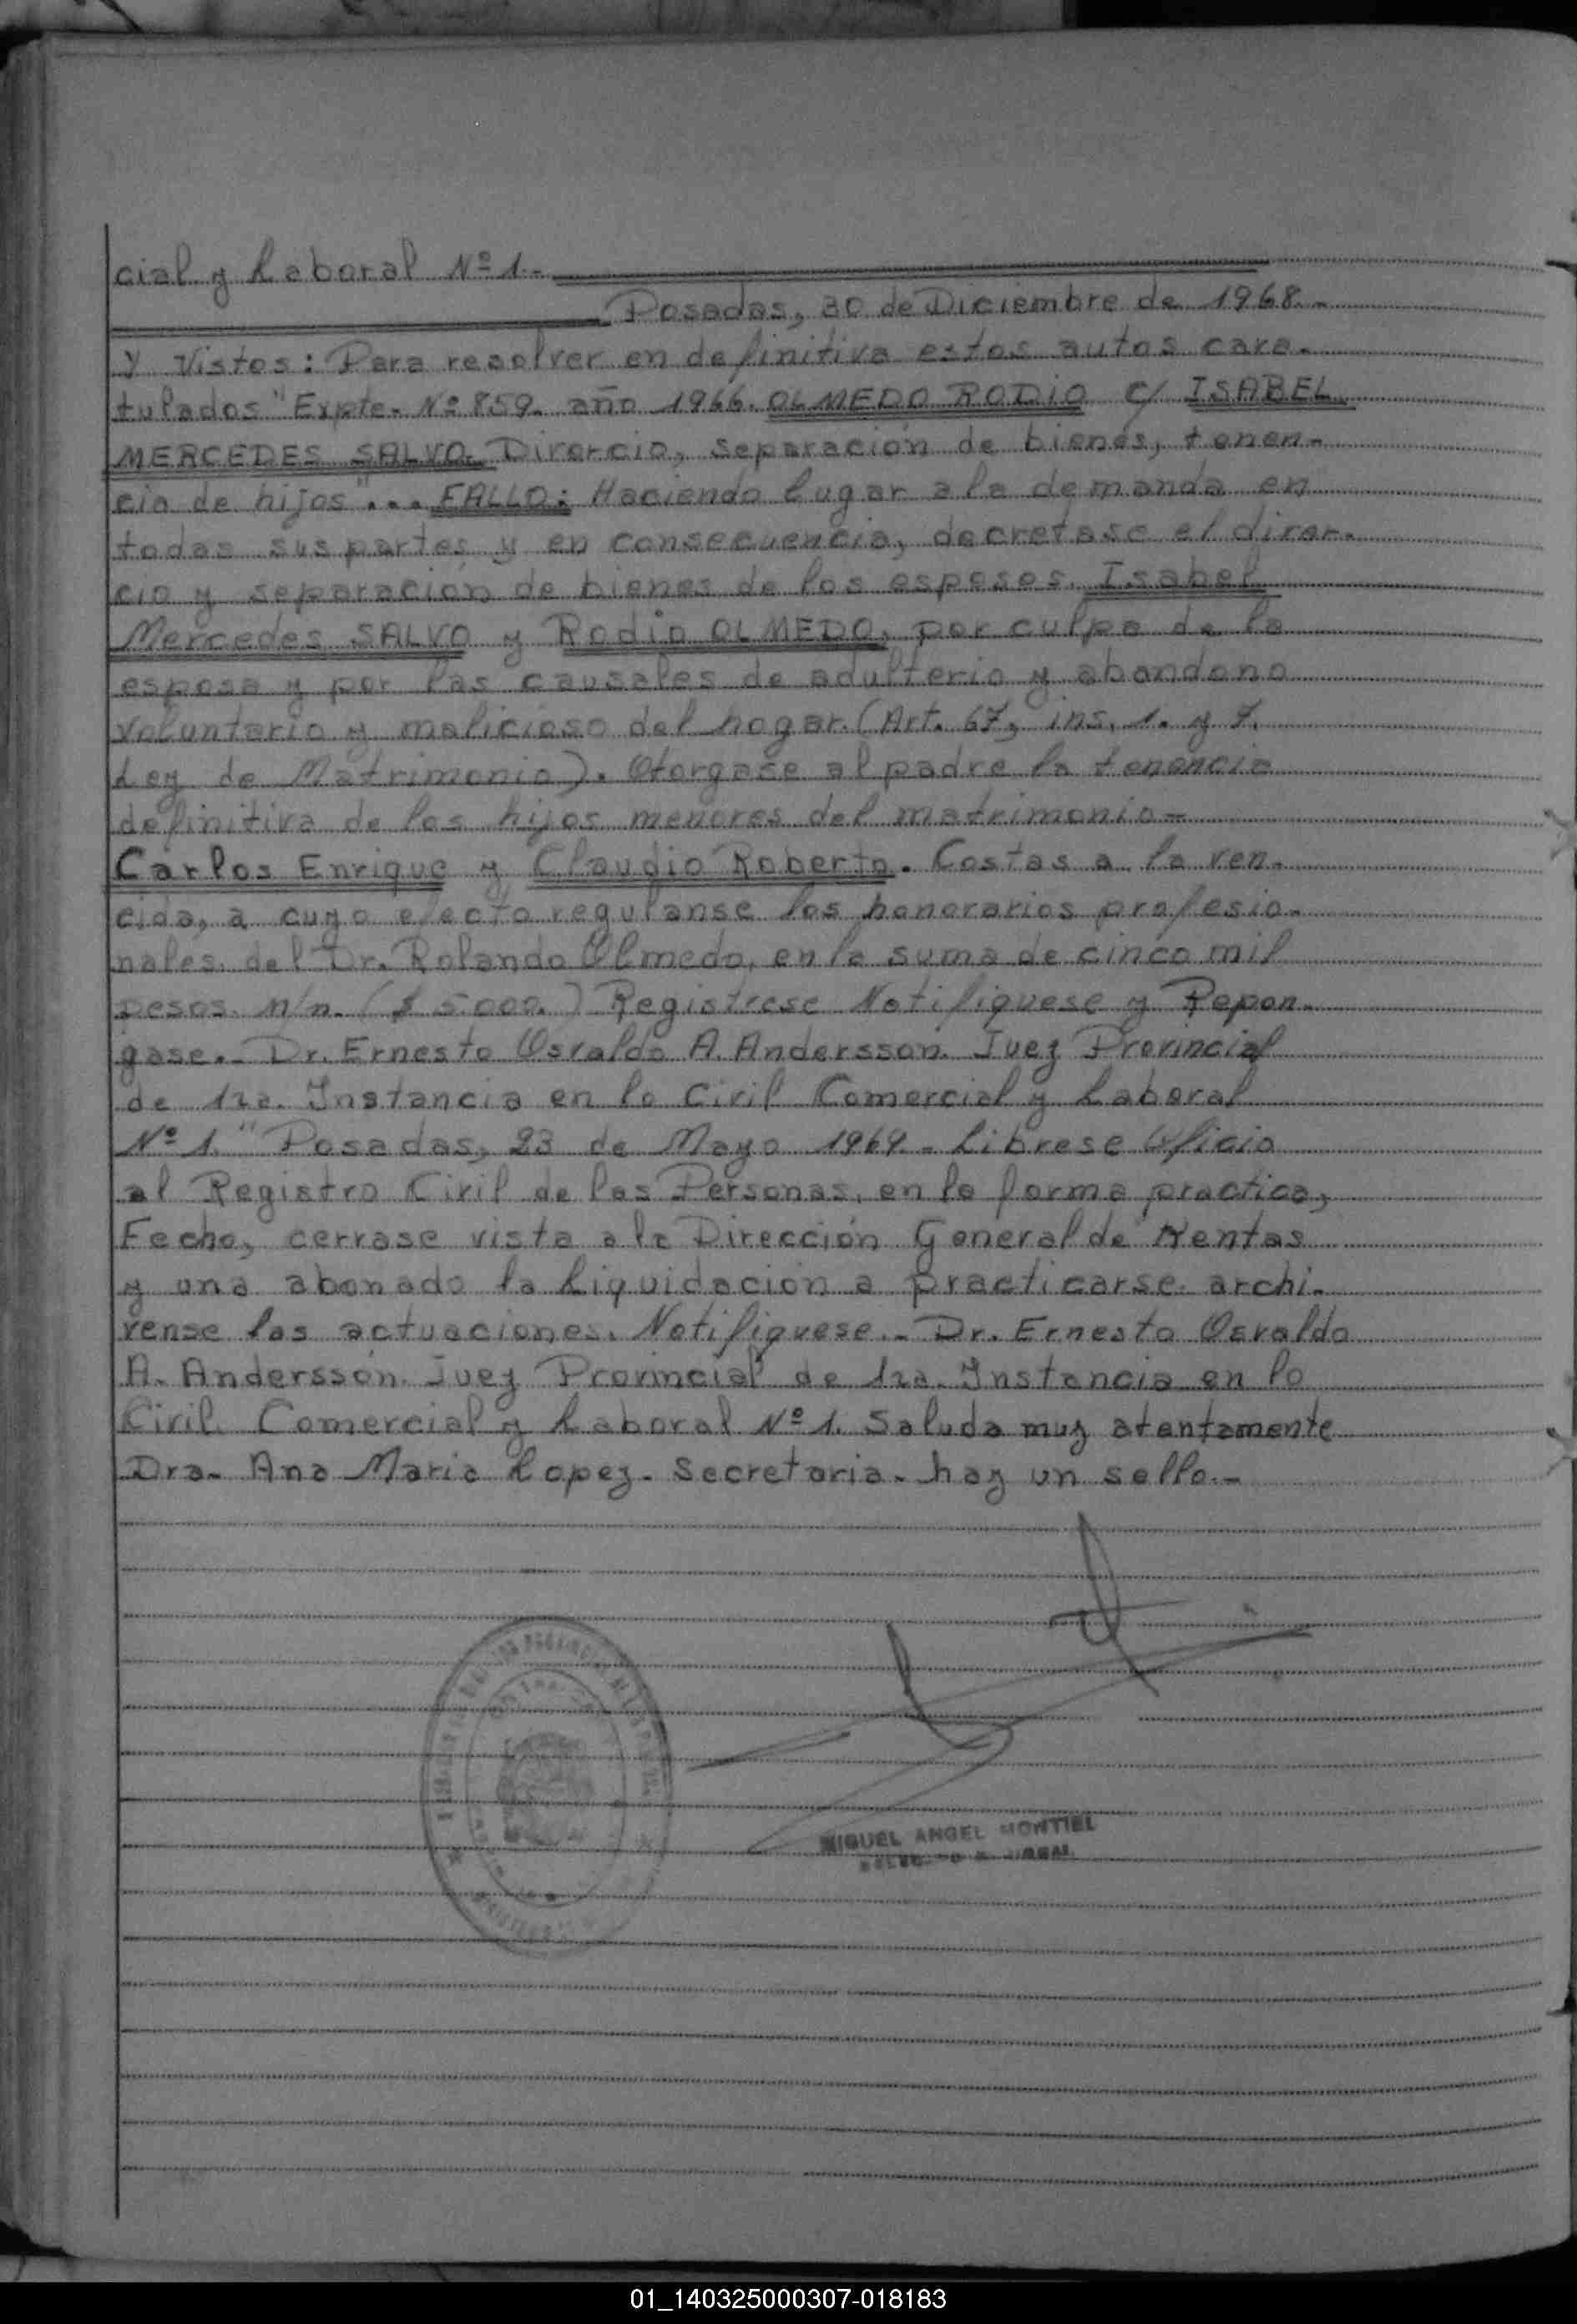 cial y Laboral Nº 1.-
Posadas, 30 de Diciembre de 1968.-
Y Vistos: Para resolver en definitiva estos autos cara-
tulados "Expte. Nº 859. año 1966. OLMEDO RODIO c/ ISABEL
MERCEDES SALVO. Divorcio, separación de bienes, tenen-
cia de hijos"... FALLO: Haciendo lugar a la demanda en
todas sus partes y en consecuencia, decretase el divor-
cio y separación de bienes de los esposos. Isabel
Mercedes SALVO y Rodio OLMEDO, por culpa de la
esposa y por las causales de adulterio y abandono
voluntario y malicioso del hogar. (Art. 67, ins. 1. y 7.
Ley de Matrimonio). Otorgase al padre la tenencia
definitiva de los hijos menores del matrimonio-
Carlos Enrique y Claudio Roberto. Costas a la ven-
cida, a cuyo efecto regulanse los honorarios profesio-
nales. del Dr. Rolando Olmedo, en la suma de cinco mil
pesos. m/n. ($ 5.000.) Registrese Notifiquese y Repon-
gase.- Dr. Ernesto Osvaldo A. Andersson. Juez Provincial
de 1ra. Instancia en lo Civil Comercial y Laboral
Nº 1." Posadas, 23 de Mayo 1969.- Librese Oficio
al Registro Civil de las Personas, en la forma practica,
Fecho, cerrase vista a la Dirección General de Rentas
y una abonado la Liquidación a practicarse. archi-
vense las actuaciones. Notifiquese.- Dr. Ernesto Osvaldo
A. Andersson. Juez Provincial de 1ra. Instancia en lo
Civil. Comercial y Laboral Nº 1. Saluda muy atentamente
Dra. Ana Maria Lopez. Secretaria. hay un sello.-
MIGUEL ANGEL MONTIEL
01_140325000307-018183